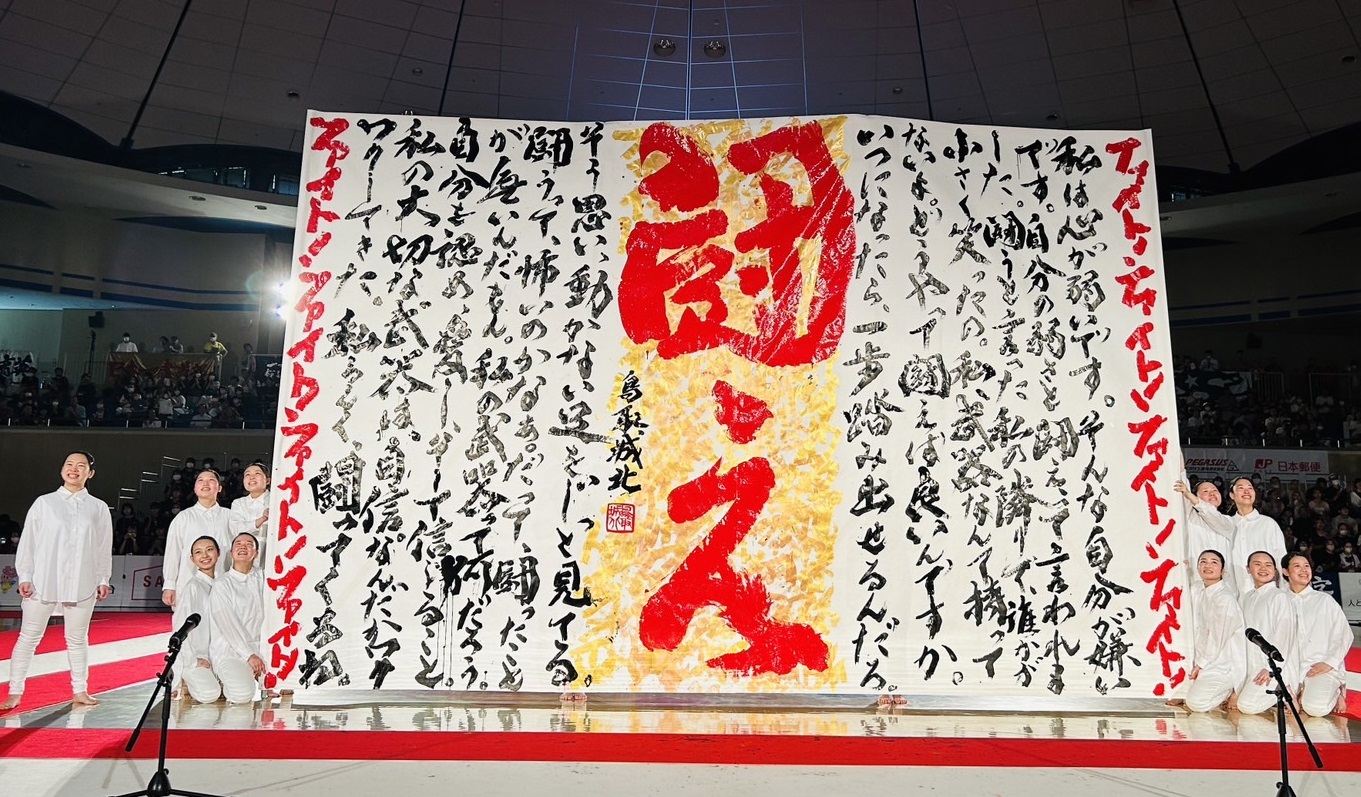 ファイト！ファイト！ファイト！ファイト！
私は心が弱いです。そんな自分が嫌い
です。自分の弱さと闘えって言われま
した。闘うと言った私の隣りで、誰かが
小さく笑ったの。私武器なんて持って
ないよ。どうやって闘えば良いんですか。
いつになったら、一歩踏み出せるんだろ。
闘え
鳥取城北
そう思い動かない足をじっと見てる。
闘うって、怖いのかなぁ。だって、闘ったこと
が無いんだもん。私の武器って何だろう。
自分を認め、愛し、そして信じること。
私の大切な武器は、自信。なんだかワク
ワクしてきた。私らしく、闘ってくるね。
ファイト！ファイト！ファイト！ファイト！
PEGASUS
JP 日本郵便